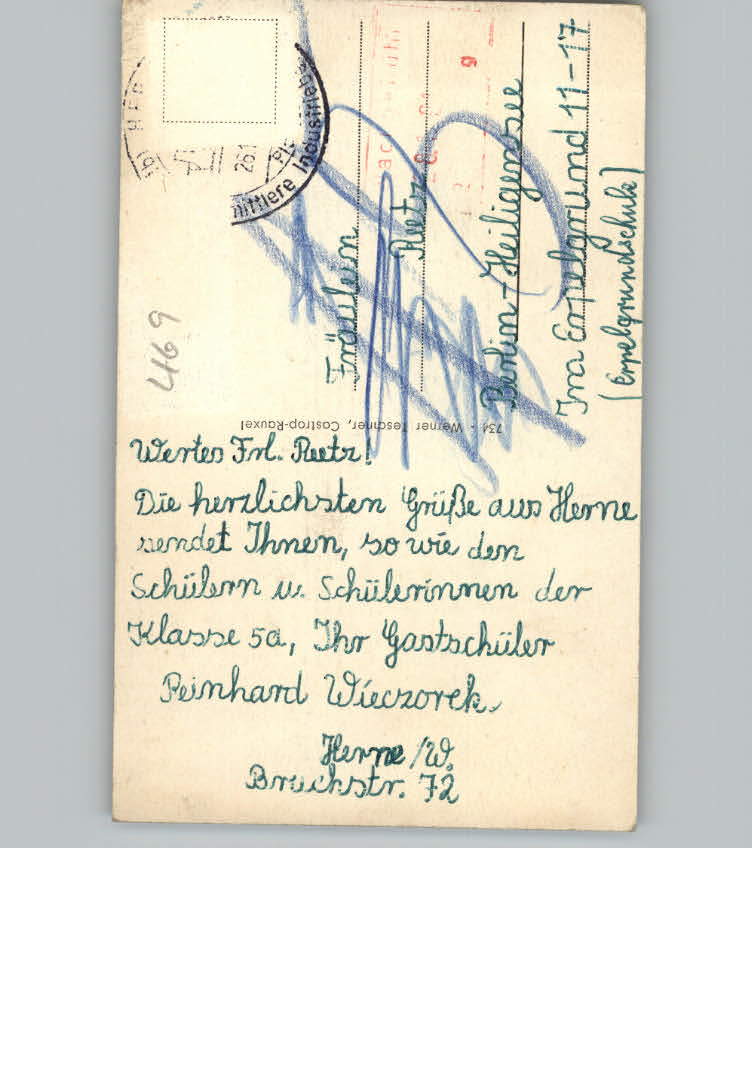 Wertes Frl. Reetz!
Die herzlichsten Grüße aus Herne
sendet Ihnen, so wie den
Schülern u. Schülerinnen der
Klasse 5a, Ihr Gastschüler
Reinhard Wieczorek.
Herne /W.
Bruchstr. 72
Fräulein
Reetz
Berlin-Heiligensee
Im Erpelgrund 11-17
(Erpelgrundschule)
734 · Werner Teschner, Castrop-Rauxel
469